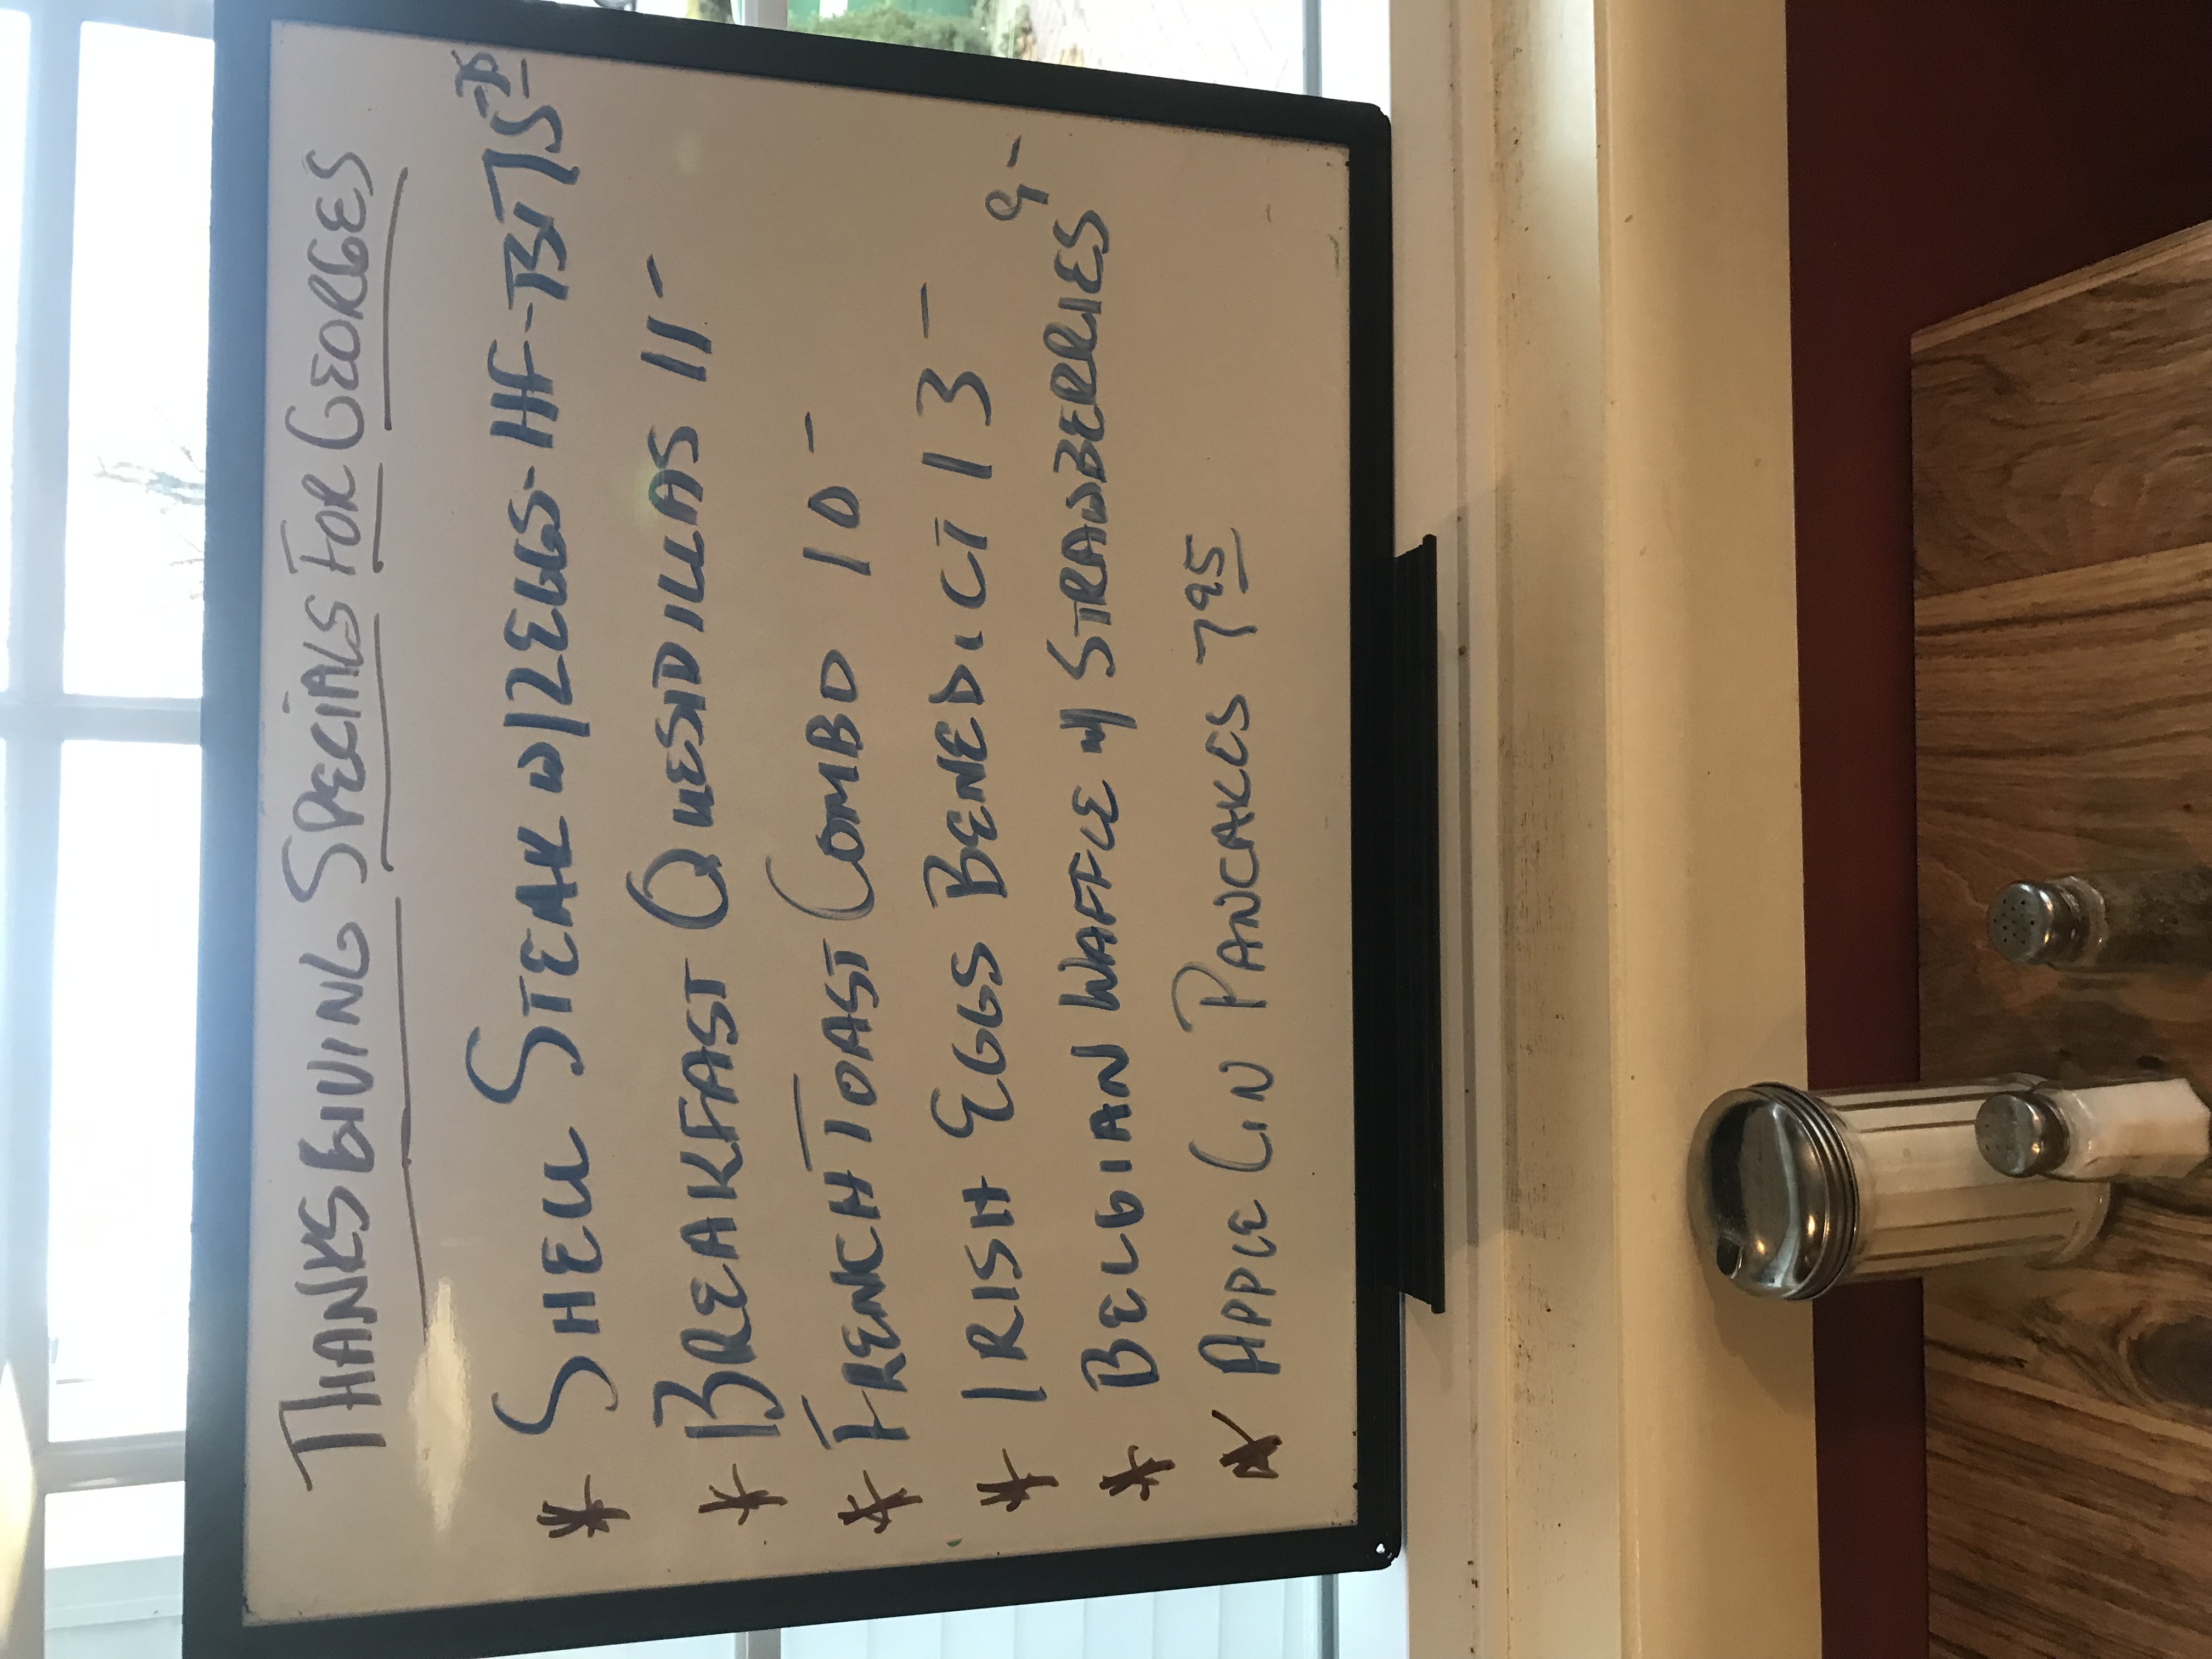 THANKSGIVING SPECIALS FOR GEORGES
* SHELL STEAK W/2 EGGS-HF-TST 15
* BREAKFAST QUESIDILLAS 11-
* FRENCH TOAST COMBO 10-
* IRISH EGGS BENEDICT 13-
* BELGIAN WAFFLE W/ STRAWBERRIES 9-
* APPLE CIN PANCAKES 7 95